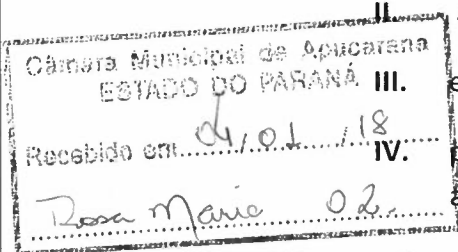 II.
Câmara Municipal de Apucarana
ESTADO DO PARANÁ
III.
Recebido em: 04/01/18
IV.
Rosa Maria 02.